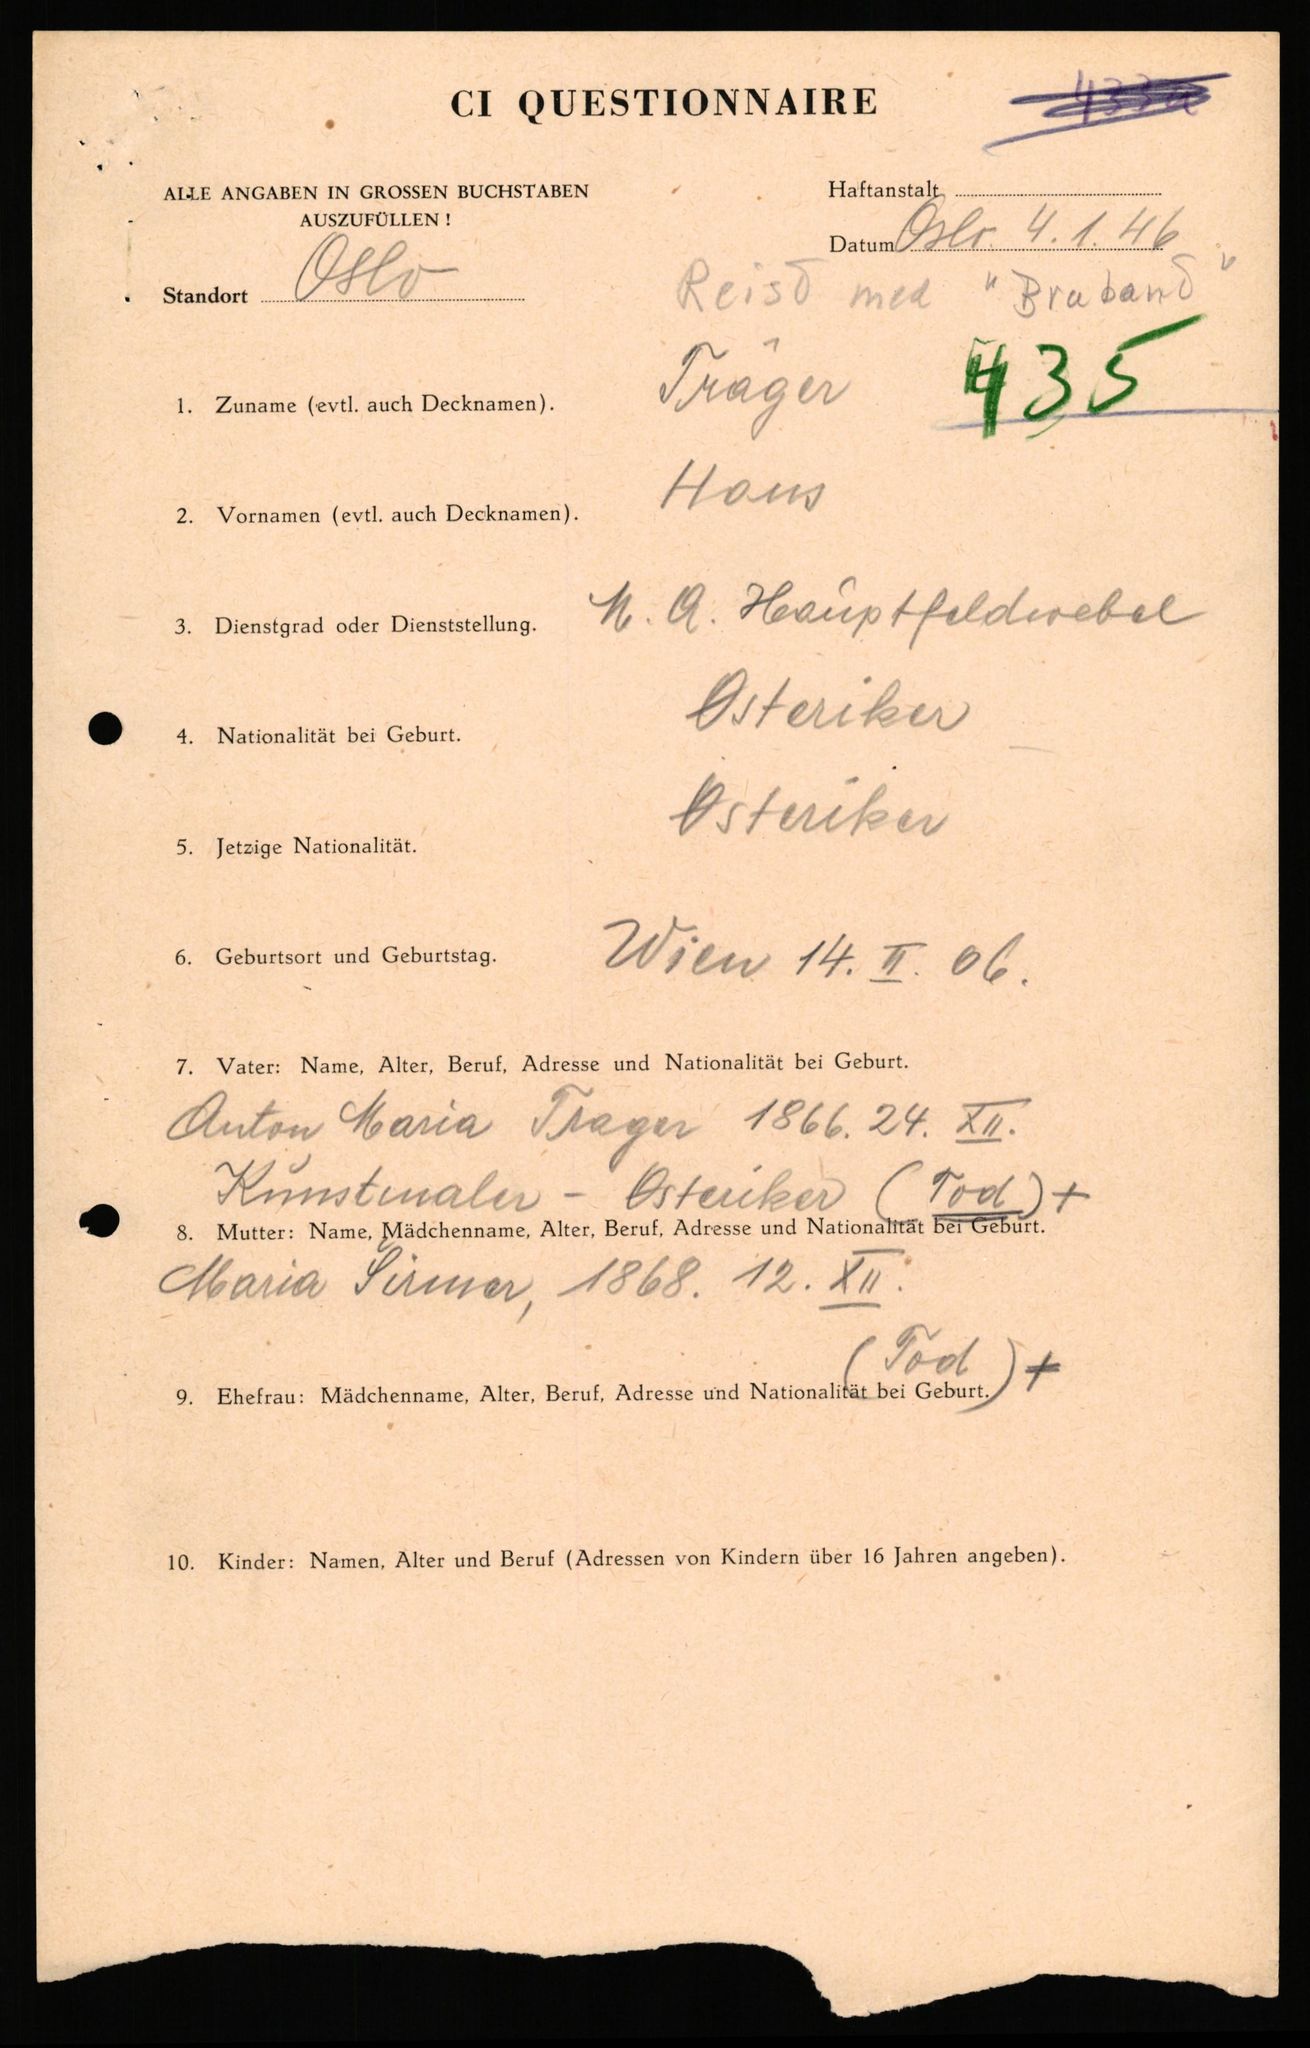 CI QUESTIONNAIRE
ALLE ANGABEN IN GROSSEN BUCHSTABEN
AUSZUFÜLLEN!
Haftanstalt
Datum Oslo. 4.1.46
Standort Oslo
Reist med "Braband"
435
1. Zuname (evtl. auch Decknamen). Träger
2. Vornamen (evtl. auch Decknamen). Hans
3. Dienstgrad oder Dienststellung. M. A. Hauptfeldwebel
4. Nationalität bei Geburt. Osteriker
5. Jetzige Nationalität. Osteriker
6. Geburtsort und Geburtstag. Wien 14. II. 06.
7. Vater: Name, Alter, Beruf, Adresse und Nationalität bei Geburt.
Anton Maria Trager 1866. 24. XII.
Kunstmaler - Osteriker (Tod) +
8. Mutter: Name, Mädchenname, Alter, Beruf, Adresse und Nationalität bei Geburt.
Maria Sirmer, 1868. 12. XII.
(Tod) +
9. Ehefrau: Mädchenname, Alter, Beruf, Adresse und Nationalität bei Geburt.
10. Kinder: Namen, Alter und Beruf (Adressen von Kindern über 16 Jahren angeben).